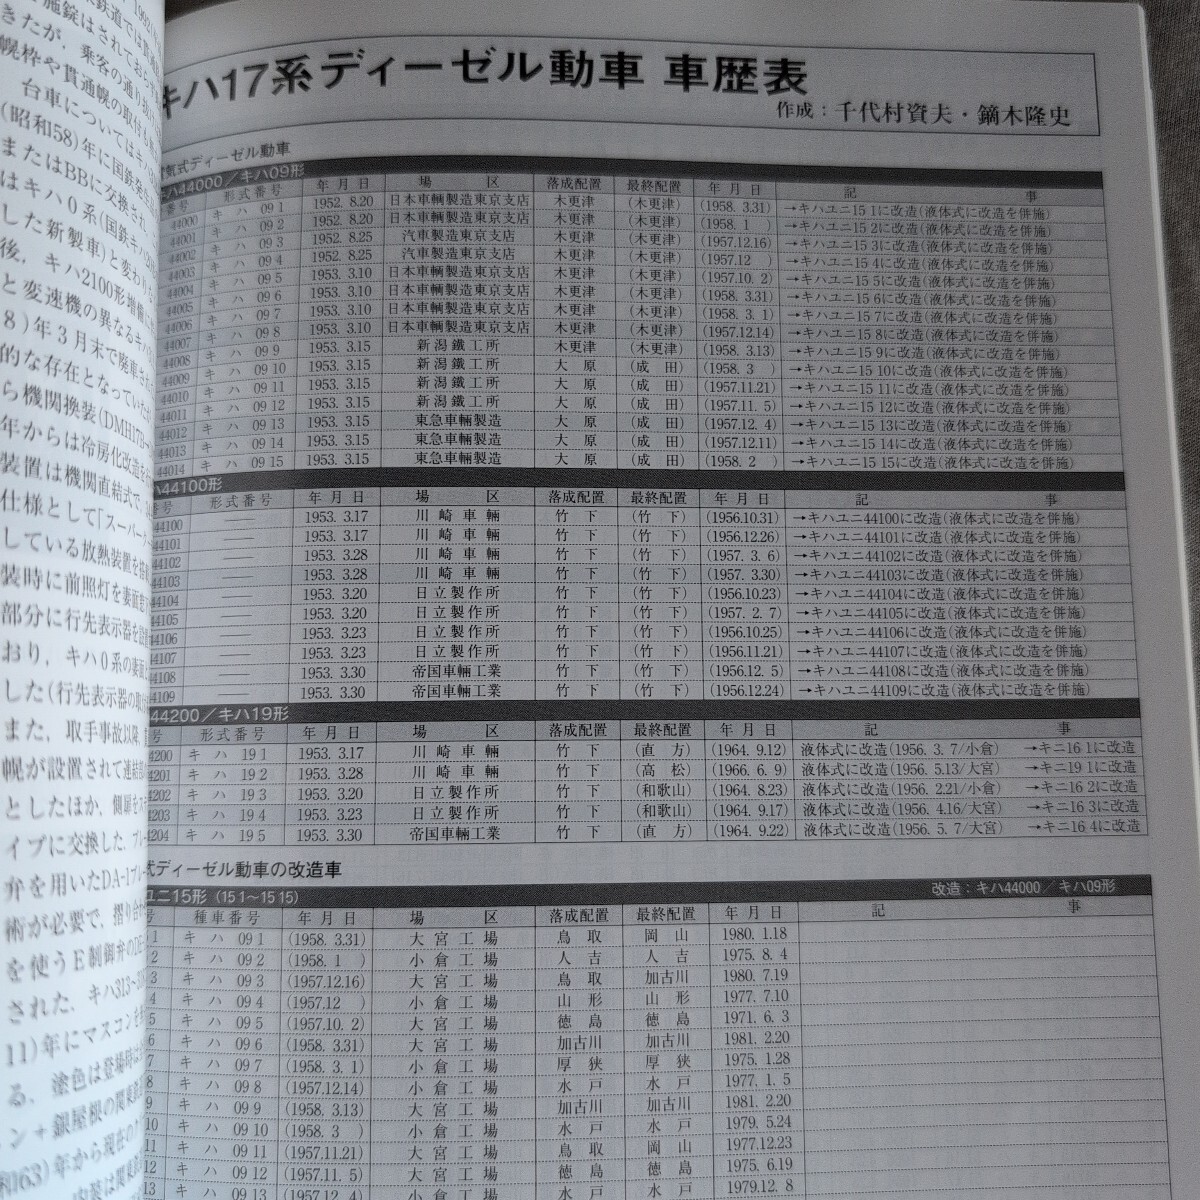 キハ17系ディーゼル動車 車歴表
作成：千代村資夫・鏑木隆史
気式ディーゼル動車
ハ44000／キハ09形
番号 形式番号 年月日 場区 落成配置 最終配置 年月日 記事
44000 キハ 09 1 1952. 8.20 日本車輌製造東京支店 木更津 (木更津) (1958. 3.31) →キハユニ15 1に改造(液体式に改造を併施)
44001 キハ 09 2 1952. 8.20 日本車輌製造東京支店 木更津 (木更津) (1958. 1 ) →キハユニ15 2に改造(液体式に改造を併施)
44002 キハ 09 3 1952. 8.25 汽車製造東京支店 木更津 (木更津) (1957.12.16) →キハユニ15 3に改造(液体式に改造を併施)
44003 キハ 09 4 1952. 8.25 汽車製造東京支店 木更津 (木更津) (1957.12 ) →キハユニ15 4に改造(液体式に改造を併施)
44004 キハ 09 5 1953. 3.10 日本車輌製造東京支店 木更津 (木更津) (1957.10. 2) →キハユニ15 5に改造(液体式に改造を併施)
44005 キハ 09 6 1953. 3.10 日本車輌製造東京支店 木更津 (木更津) (1958. 3.31) →キハユニ15 6に改造(液体式に改造を併施)
44006 キハ 09 7 1953. 3.10 日本車輌製造東京支店 木更津 (木更津) (1958. 3. 1) →キハユニ15 7に改造(液体式に改造を併施)
44007 キハ 09 8 1953. 3.10 日本車輌製造東京支店 木更津 (木更津) (1957.12.14) →キハユニ15 8に改造(液体式に改造を併施)
44008 キハ 09 9 1953. 3.15 新潟鐵工所 木更津 (木更津) (1958. 3.13) →キハユニ15 9に改造(液体式に改造を併施)
44009 キハ 09 10 1953. 3.15 新潟鐵工所 大原 (成田) (1958. 3 ) →キハユニ15 10に改造(液体式に改造を併施)
44010 キハ 09 11 1953. 3.15 新潟鐵工所 大原 (成田) (1957.11.21) →キハユニ15 11に改造(液体式に改造を併施)
44011 キハ 09 12 1953. 3.15 新潟鐵工所 大原 (成田) (1957.11. 5) →キハユニ15 12に改造(液体式に改造を併施)
44012 キハ 09 13 1953. 3.15 東急車輛製造 大原 (成田) (1957.12. 4) →キハユニ15 13に改造(液体式に改造を併施)
44013 キハ 09 14 1953. 3.15 東急車輛製造 大原 (成田) (1957.12.11) →キハユニ15 14に改造(液体式に改造を併施)
44014 キハ 09 15 1953. 3.15 東急車輛製造 大原 (成田) (1958. 2 ) →キハユニ15 15に改造(液体式に改造を併施)
ハ44100形
番号 形式番号 年月日 場区 落成配置 最終配置 年月日 記事
44100 —— 1953. 3.17 川崎車輛 竹下 (竹下) (1956.10.31) →キハユニ44100に改造(液体式に改造を併施)
44101 —— 1953. 3.17 川崎車輛 竹下 (竹下) (1956.12.26) →キハユニ44101に改造(液体式に改造を併施)
44102 —— 1953. 3.28 川崎車輛 竹下 (竹下) (1957. 3. 6) →キハユニ44102に改造(液体式に改造を併施)
44103 —— 1953. 3.28 川崎車輛 竹下 (竹下) (1957. 3.30) →キハユニ44103に改造(液体式に改造を併施)
44104 —— 1953. 3.20 日立製作所 竹下 (竹下) (1956.10.23) →キハユニ44104に改造(液体式に改造を併施)
44105 —— 1953. 3.20 日立製作所 竹下 (竹下) (1957. 2. 7) →キハユニ44105に改造(液体式に改造を併施)
44106 —— 1953. 3.23 日立製作所 竹下 (竹下) (1956.10.25) →キハユニ44106に改造(液体式に改造を併施)
44107 —— 1953. 3.23 日立製作所 竹下 (竹下) (1956.11.21) →キハユニ44107に改造(液体式に改造を併施)
44108 —— 1953. 3.30 帝国車輛工業 竹下 (竹下) (1956.12. 5) →キハユニ44108に改造(液体式に改造を併施)
44109 —— 1953. 3.30 帝国車輛工業 竹下 (竹下) (1956.12.24) →キハユニ44109に改造(液体式に改造を併施)
44200／キハ19形
号 形式番号 年月日 場区 落成配置 最終配置 年月日 記事
4200 キハ 19 1 1953. 3.17 川崎車輛 竹下 (直方) (1964. 9.12) 液体式に改造(1956. 3. 7/小倉) →キニ16 1に改造
4201 キハ 19 2 1953. 3.28 川崎車輛 竹下 (高松) (1966. 6. 9) 液体式に改造(1956. 5.13/大宮) →キニ19 1に改造
4202 キハ 19 3 1953. 3.20 日立製作所 竹下 (和歌山) (1964. 8.23) 液体式に改造(1956. 2.21/小倉) →キニ16 2に改造
4203 キハ 19 4 1953. 3.23 日立製作所 竹下 (和歌山) (1964. 9.17) 液体式に改造(1956. 4.16/大宮) →キニ16 3に改造
4204 キハ 19 5 1953. 3.30 帝国車輛工業 竹下 (直方) (1964. 9.22) 液体式に改造(1956. 5. 7/大宮) →キニ16 4に改造
式ディーゼル動車の改造車
ユニ15形 (15 1～15 15) 改造：キハ44000／キハ09形
号 種車番号 年月日 場区 落成配置 最終配置 年月日 記事
1 キハ 09 1 (1958. 3.31) 大宮工場 鳥取 岡山 1980. 1.18
2 キハ 09 2 (1958. 1 ) 小倉工場 人吉 人吉 1975. 8. 4
3 キハ 09 3 (1957.12.16) 大宮工場 鳥取 加古川 1980. 7.19
4 キハ 09 4 (1957.12 ) 小倉工場 山形 山形 1977. 7.10
5 キハ 09 5 (1957.10. 2) 大宮工場 徳島 徳島 1971. 6. 3
6 キハ 09 6 (1958. 3.31) 大宮工場 加古川 加古川 1981. 2.20
7 キハ 09 7 (1958. 3. 1) 小倉工場 厚狭 厚狭 1975. 1.28
8 キハ 09 8 (1957.12.14) 小倉工場 水戸 水戸 1977. 1. 5
9 キハ 09 9 (1958. 3.13) 大宮工場 加古川 加古川 1981. 2.20
10 キハ 09 10 (1958. 3 ) 小倉工場 水戸 水戸 1979. 5.24
11 キハ 09 11 (1957.11.21) 大宮工場 鳥取 岡山 1977.12.23
12 キハ 09 12 (1957.11. 5) 大宮工場 徳島 徳島 1975. 6.19
13 キハ 09 13 (1957.12. 4) 小倉工場 水戸 水戸 1979.12. 8
きたが、乗客の通り抜け
幌枠や貫通幌の取付も
台車についてはキハ
(昭和58)年に国鉄発生
またはBBに交換され
はキハ0系(国鉄キハ
した新製車)と変わりな
後、キハ2100形増備に
と変速機の異なるキハ
8)年3月末で廃車され
的な存在となっていた
ら機関換装(DMH17B→
年からは冷房化改造を
装置は機関直結式で、
仕様として「スーパー
している放熱装置を搭載
装時に前照灯を妻面窓下
部分に行先表示器を設
おり、キハ0系の妻面
した(行先表示器の取付
また、取手事故以降、
幌が設置されて連結部
としたほか、側扉をステ
イプに交換した.ブレー
弁を用いたDA-1ブレー
術が必要で、摺り合わ
を使うE制御弁のDE-
された. キハ313～
11)年にマスコンを
る、塗色は登場時は
ン+銀屋根の関東鉄道
和63)年から現在の